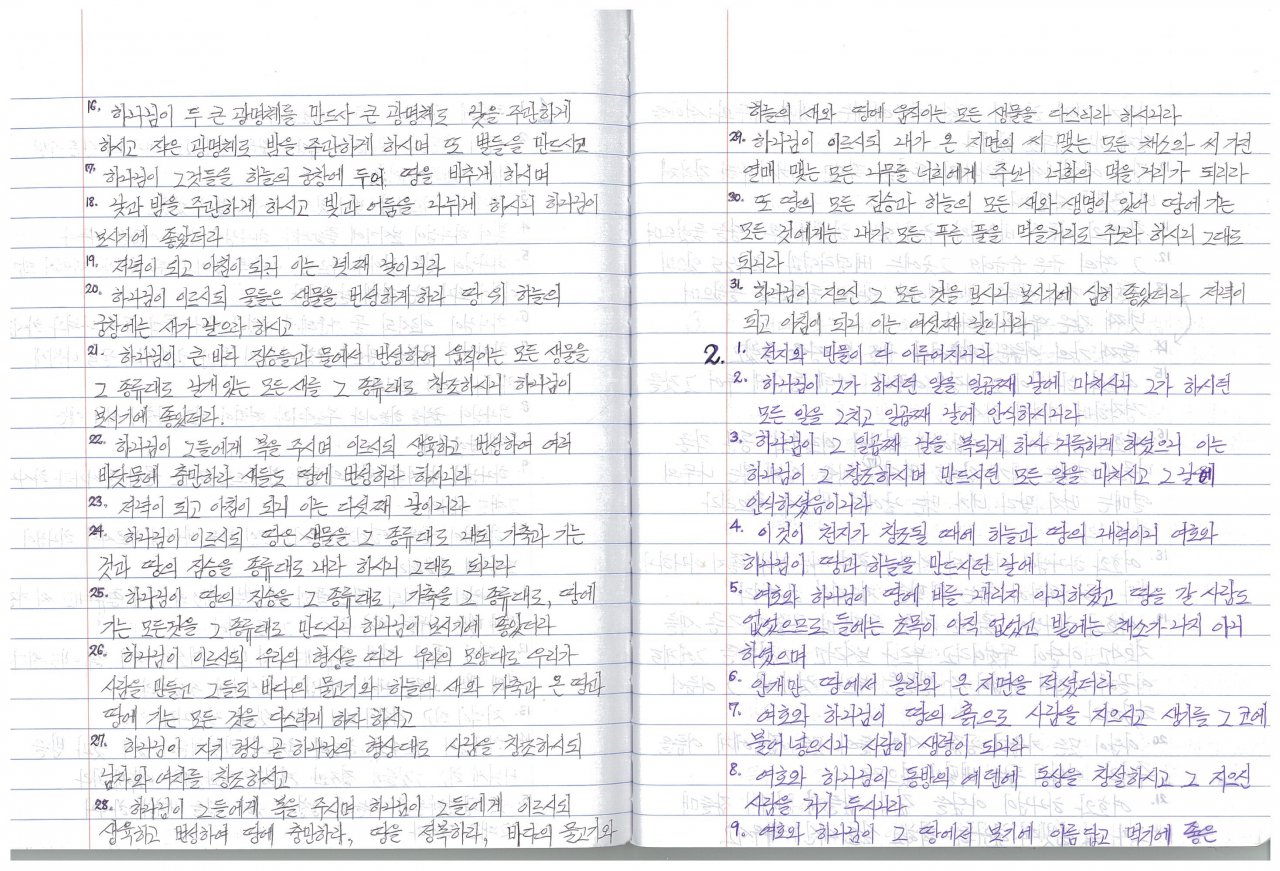 16. 하나님이 두 큰 광명체를 만드사 큰 광명체로 낮을 주관하게
하시고 작은 광명체로 밤을 주관하게 하시며 또 별들을 만드시고
17. 하나님이 그것들을 하늘의 궁창에 두어 땅을 비추게 하시며
18. 낮과 밤을 주관하게 하시고 빛과 어둠을 나뉘게 하시니 하나님이
보시기에 좋았더라
19. 저녁이 되고 아침이 되니 이는 넷째 날이니라
20. 하나님이 이르시되 물들은 생물을 번성하게 하라 땅 위 하늘의
궁창에는 새가 날으라 하시고
21. 하나님이 큰 바다 짐승들과 물에서 번성하여 움직이는 모든 생물을
그 종류대로 날개 있는 모든 새를 그 종류대로 창조하시니 하나님이
보시기에 좋았더라.
22. 하나님이 그들에게 복을 주시며 이르시되 생육하고 번성하여 여러
바닷물에 충만하라 새들도 땅에 번성하라 하시니라
23. 저녁이 되고 아침이 되니 이는 다섯째 날이니라
24. 하나님이 이르시되 땅은 생물을 그 종류대로 내되 가축과 기는
것과 땅의 짐승을 종류대로 내라 하시니 그대로 되니라
25. 하나님이 땅의 짐승을 그 종류대로, 가축을 그 종류대로, 땅에
기는 모든것을 그 종류대로 만드시니 하나님이 보시기에 좋았더라
26. 하나님이 이르시되 우리의 형상을 따라 우리의 모양대로 우리가
사람을 만들고 그들로 바다의 물고기와 하늘의 새와 가축과 온 땅과
땅에 기는 모든 것을 다스리게 하자 하시고
27. 하나님이 자기 형상 곧 하나님의 형상대로 사람을 창조하시되
남자와 여자를 창조하시고
28. 하나님이 그들에게 복을 주시며 하나님이 그들에게 이르시되
생육하고 번성하여 땅에 충만하라, 땅을 정복하라, 바다의 물고기와
하늘의 새와 땅에 움직이는 모든 생물을 다스리라 하시니라
29. 하나님이 이르시되 내가 온 지면의 씨 맺는 모든 채소와 씨 가진
열매 맺는 모든 나무를 너희에게 주노니 너희의 먹을 거리가 되리라
30. 또 땅의 모든 짐승과 하늘의 모든 새와 생명이 있어 땅에 기는
모든 것에게는 내가 모든 푸른 풀을 먹을거리로 주노라 하시니 그대로
되니라
31. 하나님이 지으신 그 모든 것을 보시니 보시기에 심히 좋았더라 저녁이
되고 아침이 되니 이는 여섯째 날이니라
2. 1. 천지와 만물이 다 이루어지니라
2. 하나님이 그가 하시던 일을 일곱째 날에 마치시니 그가 하시던
모든 일을 그치고 일곱째 날에 안식하시니라
3. 하나님이 그 일곱째 날을 복되게 하사 거룩하게 하셨으니 이는
하나님이 그 창조하시며 만드시던 모든 일을 마치시고 그 날에
안식하셨음이니라
4. 이것이 천지가 창조될 때에 하늘과 땅의 내력이니 여호와
하나님이 땅과 하늘을 만드시던 날에
5. 여호와 하나님이 땅에 비를 내리지 아니하셨고 땅을 갈 사람도
없었으므로 들에는 초목이 아직 없었고 밭에는 채소가 나지 아니
하였으며
6. 안개만 땅에서 올라와 온 지면을 적셨더라
7. 여호와 하나님이 땅의 흙으로 사람을 지으시고 생기를 그 코에
불어 넣으시니 사람이 생령이 되니라
8. 여호와 하나님이 동방의 에덴에 동산을 창설하시고 그 지으신
사람을 거기 두시니라
9. 여호와 하나님이 그 땅에서 보기에 아름답고 먹기에 좋은